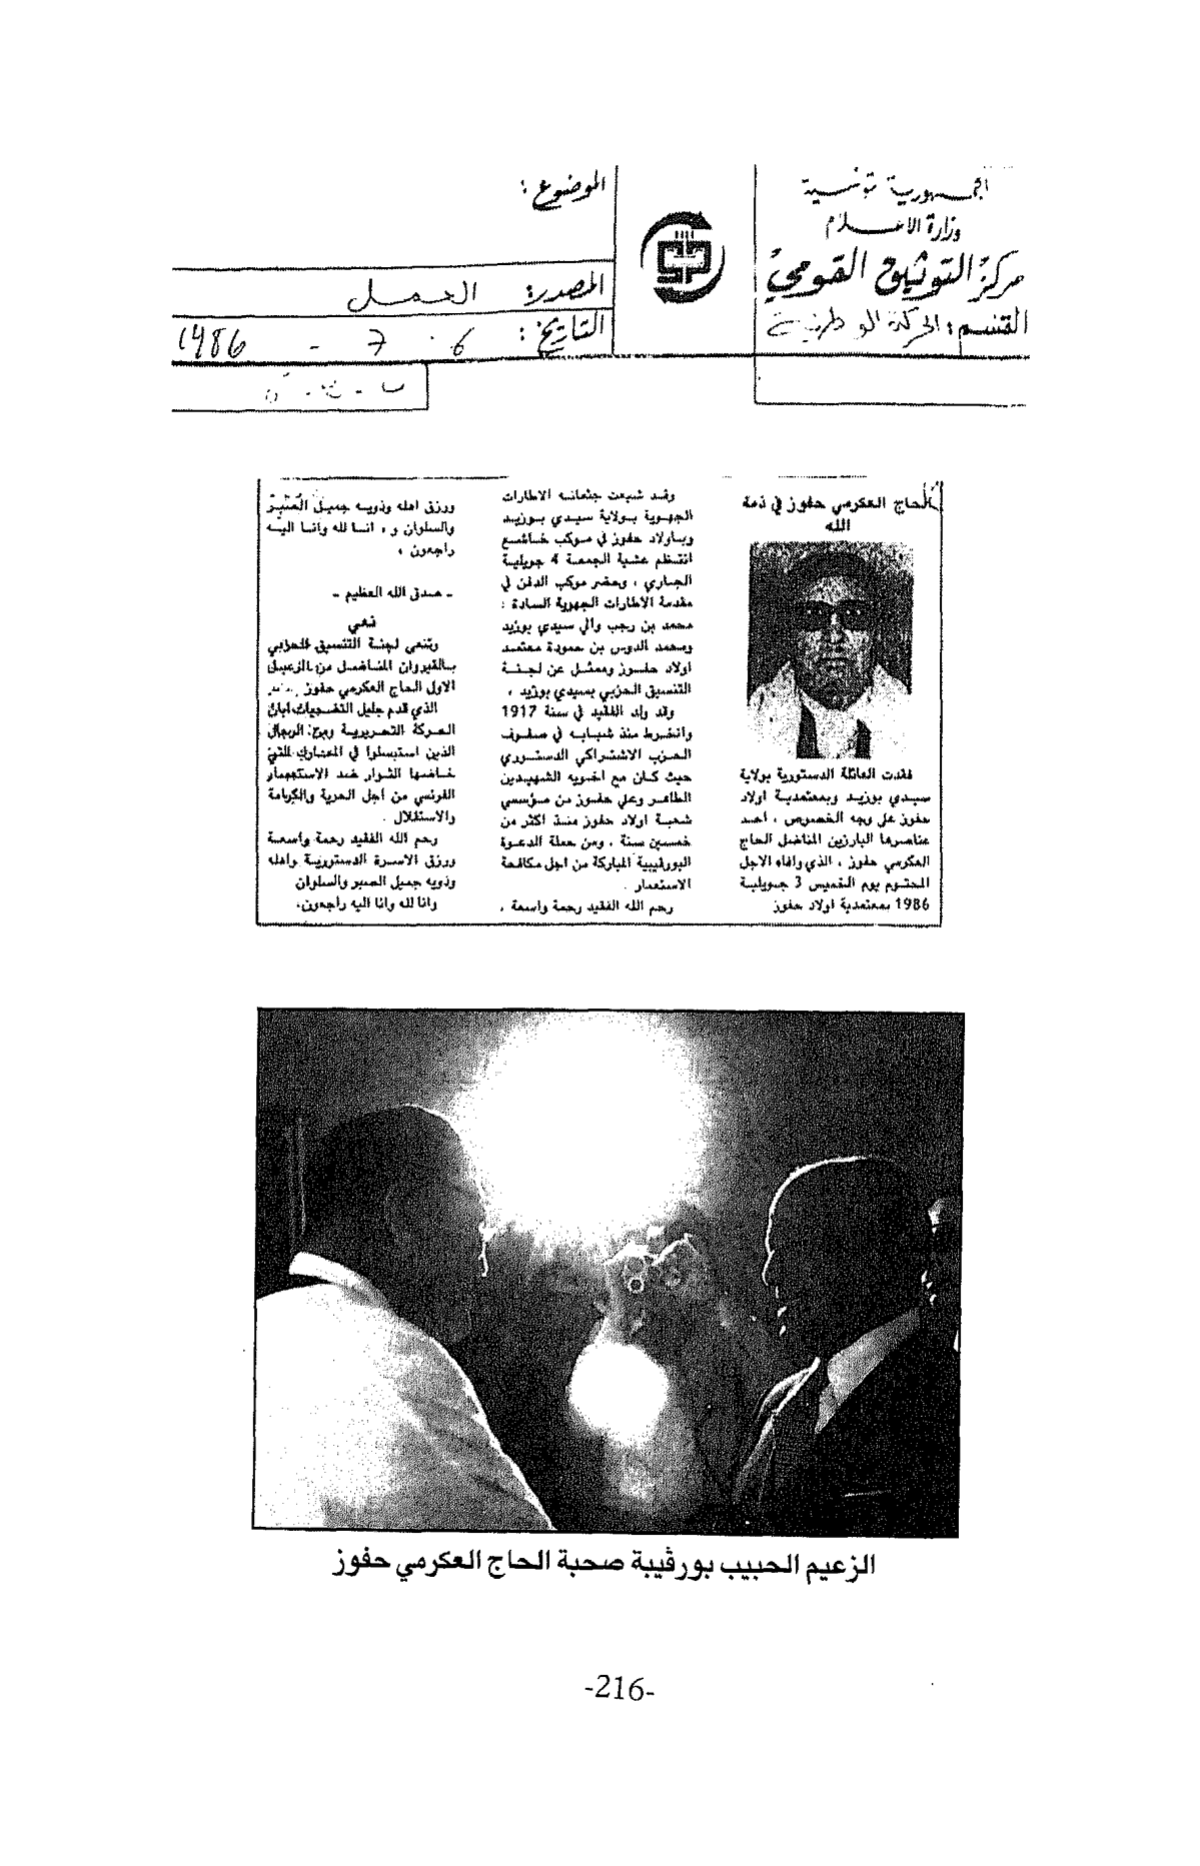 الجمهورية التونسية
وزارة الاعلام
مركز التوثيق القومي
القسم : الحركة الوطنية
الموضوع :
المصدر : العمل
التاريخ : 6 - 7 - 1986
الحاج العكرمي حفوز في ذمة
الله
فقدت العائلة الدستورية بولاية
سيدي بوزيد وبمعتمدية اولاد
حفوز على وجه الخصوص ، احد
عناصرها البارزين المناضل الحاج
العكرمي حفوز ، الذي وافاه الاجل
المحتوم يوم الخميس 3 جويلية
1986 بمعتمدية اولاد حفوز
وقد شيعت جثمانه الاطارات
الجهوية بولاية سيدي بوزيد
وباولاد حفوز في موكب خاشع
انتظم عشية الجمعة 4 جويلية
الجاري ، وحضر موكب الدفن في
مقدمة الاطارات الجهوية السادة :
محمد بن رجب والي سيدي بوزيد
ومحمد الدوس بن حمودة معتمد
اولاد حفوز وممثل عن لجنة
التنسيق الحزبي بسيدي بوزيد ،
وقد ولد الفقيد في سنة 1917
وانخرط منذ شبابه في صفوف
الحزب الاشتراكي الدستوري
حيث كان مع اخويه الشهيدين
الطاهر وعلي حفوز من مؤسسي
شعبة اولاد حفوز منذ اكثر من
خمسين سنة ، ومن حملة الدعوة
البورقيبية المباركة من اجل مكافحة
الاستعمار .
رحم الله الفقيد رحمة واسعة ،
ورزق اهله وذويه جميل الصبر
والسلوان و « انا لله وانا اليه
راجعون »
- صدق الله العظيم -
نعي
وتنعي لجنة التنسيق الحزبي
بالقيروان المناضل من الرعيل
الاول الحاج العكرمي حفوز
الذي قدم جليل التضحيات ابان
الحركة التحريرية وبرح الرجال
الذين استبسلوا في المعارك التي
خاضها الثوار ضد الاستعمار
الفرنسي من أجل الحرية والكرامة
والاستقلال .
رحم الله الفقيد رحمة واسعة
ورزق الاسرة الدستورية واهله
وذويه جميل الصبر والسلوان
وانا لله وانا اليه راجعون.
الزعيم الحبيب بورڤيبة صحبة الحاج العكرمي حفوز
-216-